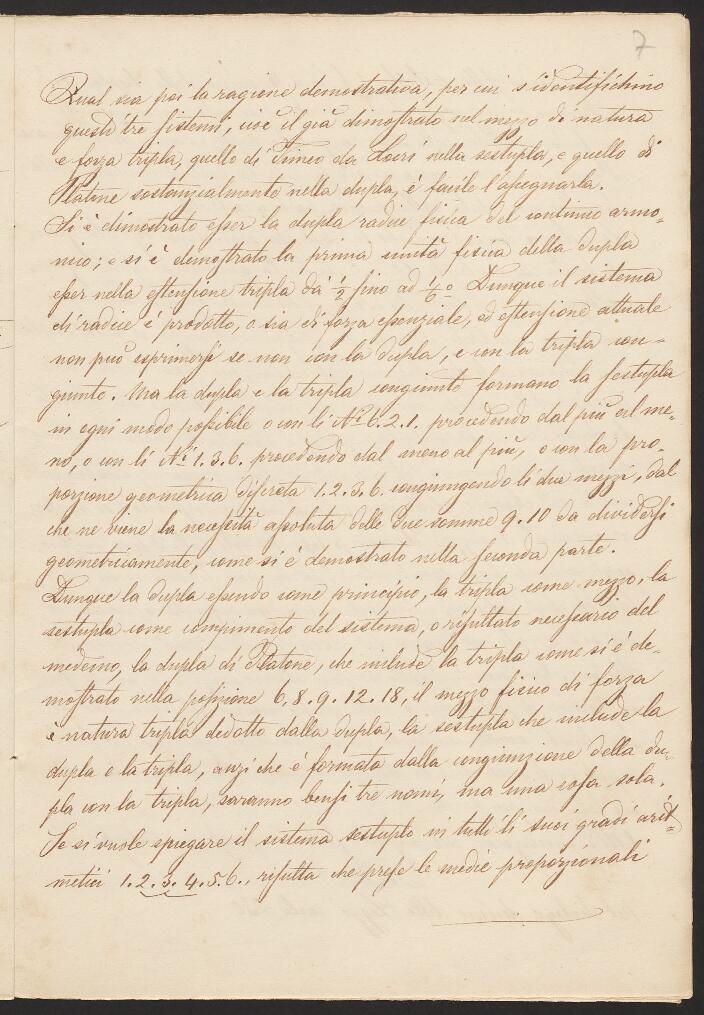 7
Qual sia poi la ragione demostrativa, per cui s'identifichino
questi tre sistemi, cioè il già dimostrato nel mezzo di natura
e forza tripla, quello di Timeo da Locri nella sestupla, e quello di
Platone sostanzialmente nella dupla, è facile l'assegnarla.
Si è dimostrato esser la dupla radice fisica del continuo armo-
nico; e si è demostrato la prima unità fisica della dupla
esser nella estensione tripla da 1/2 fino ad 1/6. Dunque il sistema
di radice e prodotto, o sia di forza essenziale, ed estensione attuale
non può esprimersi se non con la dupla, e con la tripla con-
giunte. Ma la dupla e la tripla congiunte formano la sestupla
in ogni modo possibile o con li N.i 6.2.1. procedendo dal più al me-
no, o con li N.i 1.3.6. procedendo dal meno al più, o con la pro-
porzione geometrica discreta 1.2.3.6. congiungendo li due mezzi, dal
che ne viene la necessità assoluta delle due somme 9.10 da dividersi
geometricamente, come si è demostrato nella seconda parte.
Dunque la dupla essendo come principio, la tripla come mezzo, la
sestupla come compimento del sistema, o risultato necessario del
medemo, la dupla di Platone, che include la tripla come si è de-
mostrato nella posizione 6.8.9.12.18, il mezzo fisico di forza
e natura tripla dedotto dalla dupla, la sestupla che include la
dupla e la tripla, anzi che è formata dalla congiunzione della du-
pla con la tripla, saranno bensì tre nomi, ma una cosa sola.
Se si vuole spiegare il sistema sestuplo in tutti li suoi gradi arit-
metici 1.2.3.4.5.6., risulta che prese le medie proporzionali